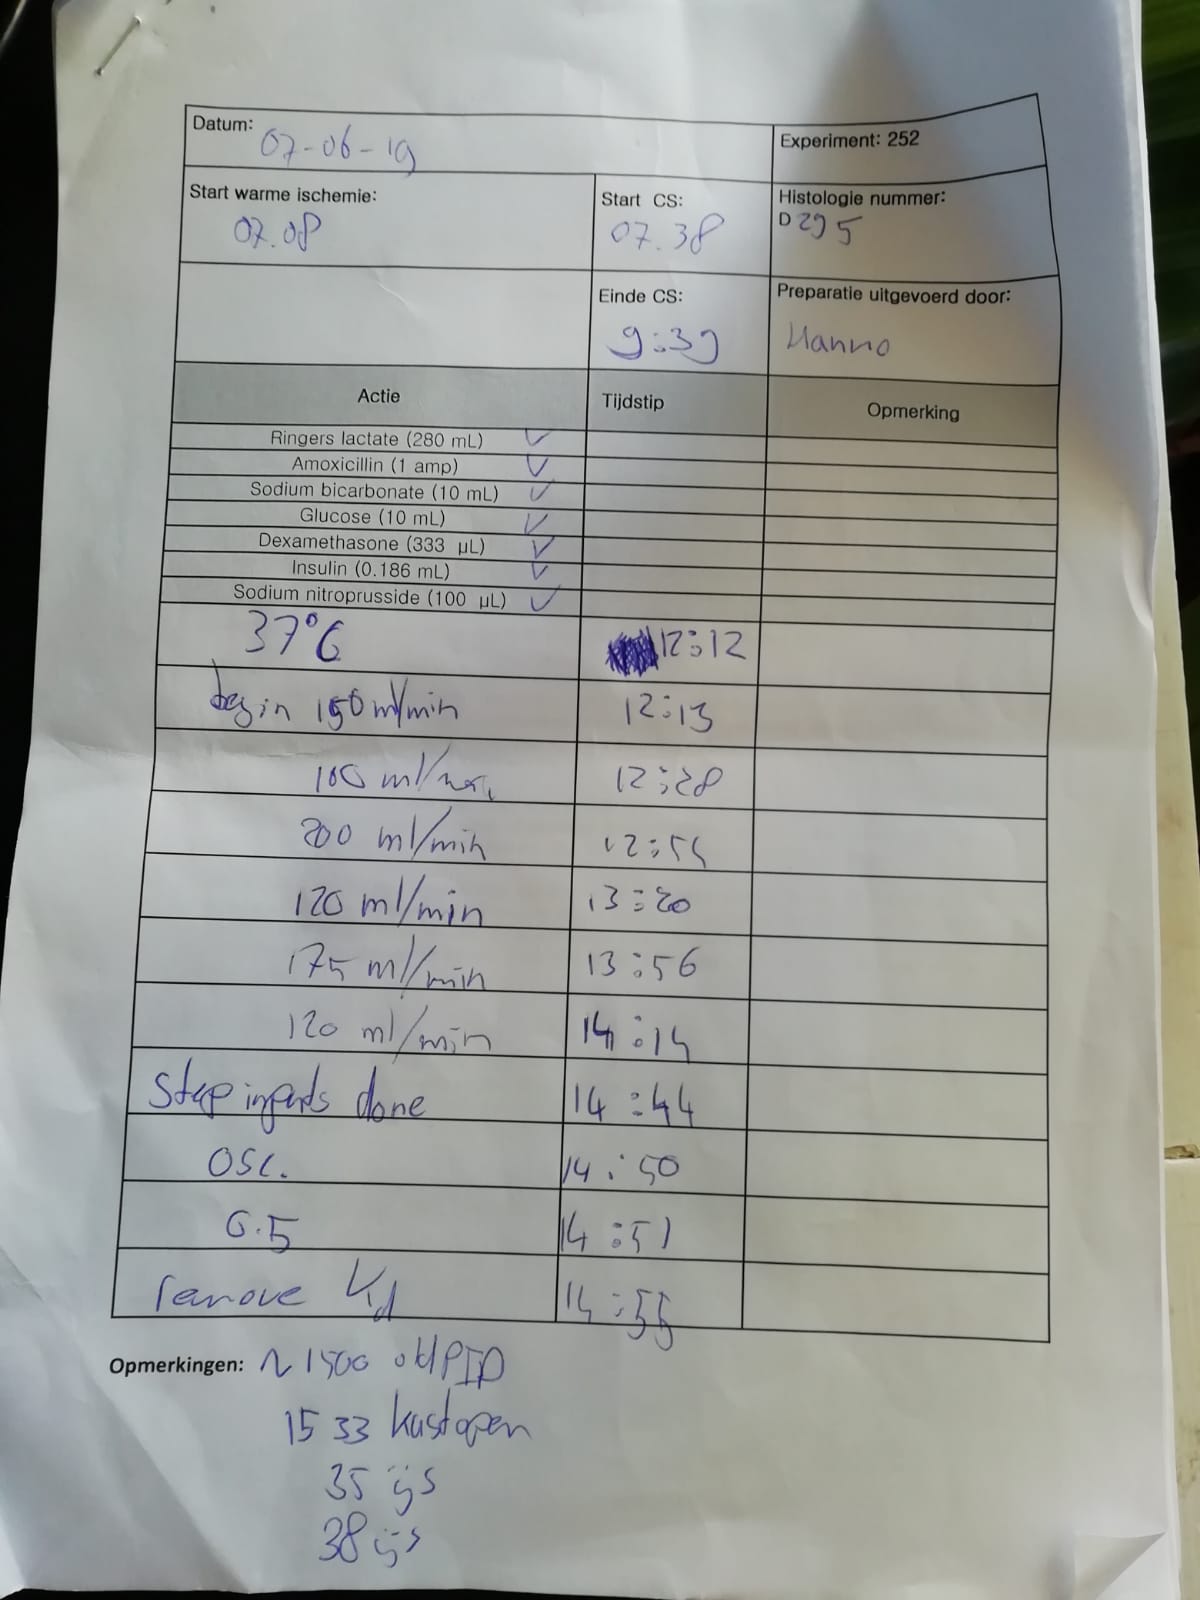 Datum: 07-06-19
Experiment: 252
Start warme ischemie: 07.08
Start CS: 07.38
Histologie nummer: D295
Einde CS: 9:39
Preparatie uitgevoerd door: Hanno
Actie Tijdstip Opmerking
Ringers lactate (280 mL) ✓
Amoxicillin (1 amp) ✓
Sodium bicarbonate (10 mL) ✓
Glucose (10 mL) ✓
Dexamethasone (333 µL) ✓
Insulin (0.186 mL) ✓
Sodium nitroprusside (100 µL) ✓
37°C 12:12
begin 150 ml/min 12:13
100 ml/min 12:28
200 ml/min 12:54
120 ml/min 13:20
175 ml/min 13:56
120 ml/min 14:14
Step inputs done 14:44
OSC. 14:50
14:51
remove Kd 14:55
Opmerkingen: ~ 1500 PID
15 33 kast open
35 ijs
38 ijs